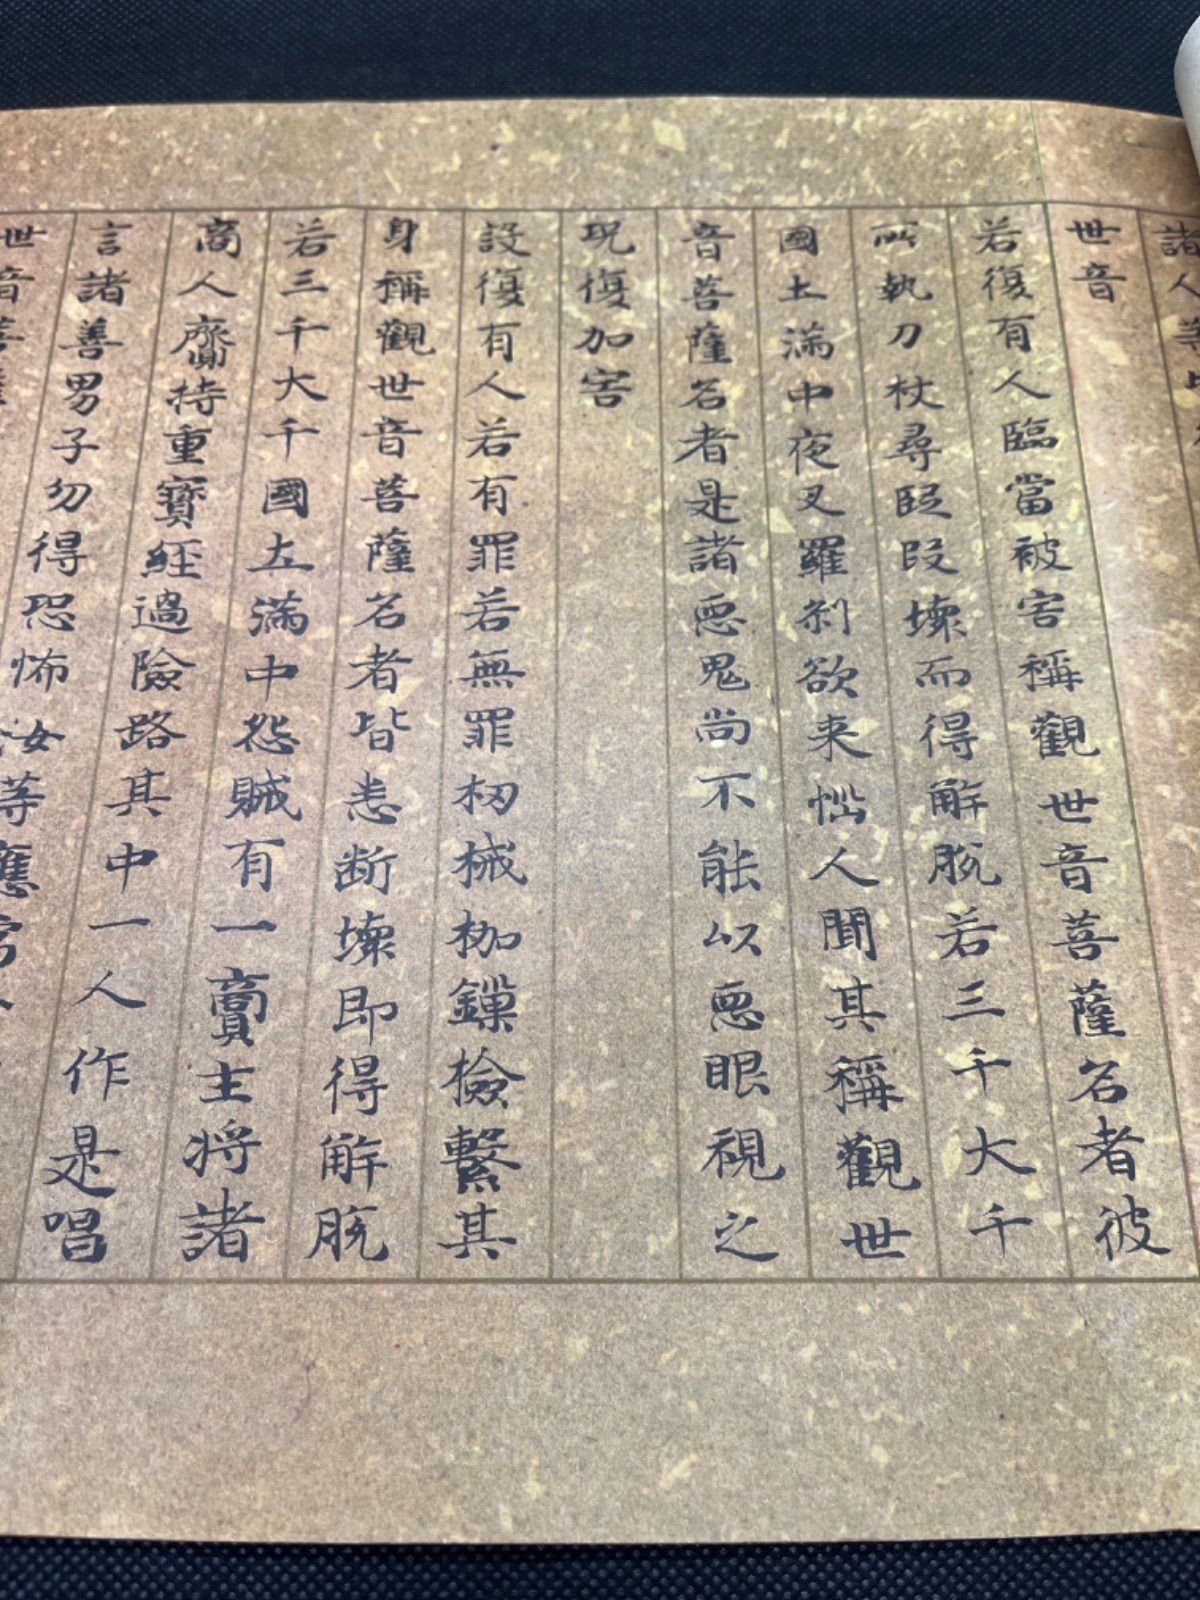 諸人等
世音
若復有人臨當被害稱觀世音菩薩名者彼
所執刀杖尋段段壞而得解脫若三千大千
國土滿中夜叉羅剎欲来惱人聞其稱觀世
音菩薩名者是諸惡鬼尚不能以惡眼視之
況復加害
設復有人若有罪若無罪杻械枷鏁撿繫其
身稱觀世音菩薩名者皆悉断壞即得解脫
若三千大千國土滿中怨賊有一商主將諸
商人齎持重寶經過險路其中一人作是唱
言諸善男子勿得恐怖汝等應
世音菩